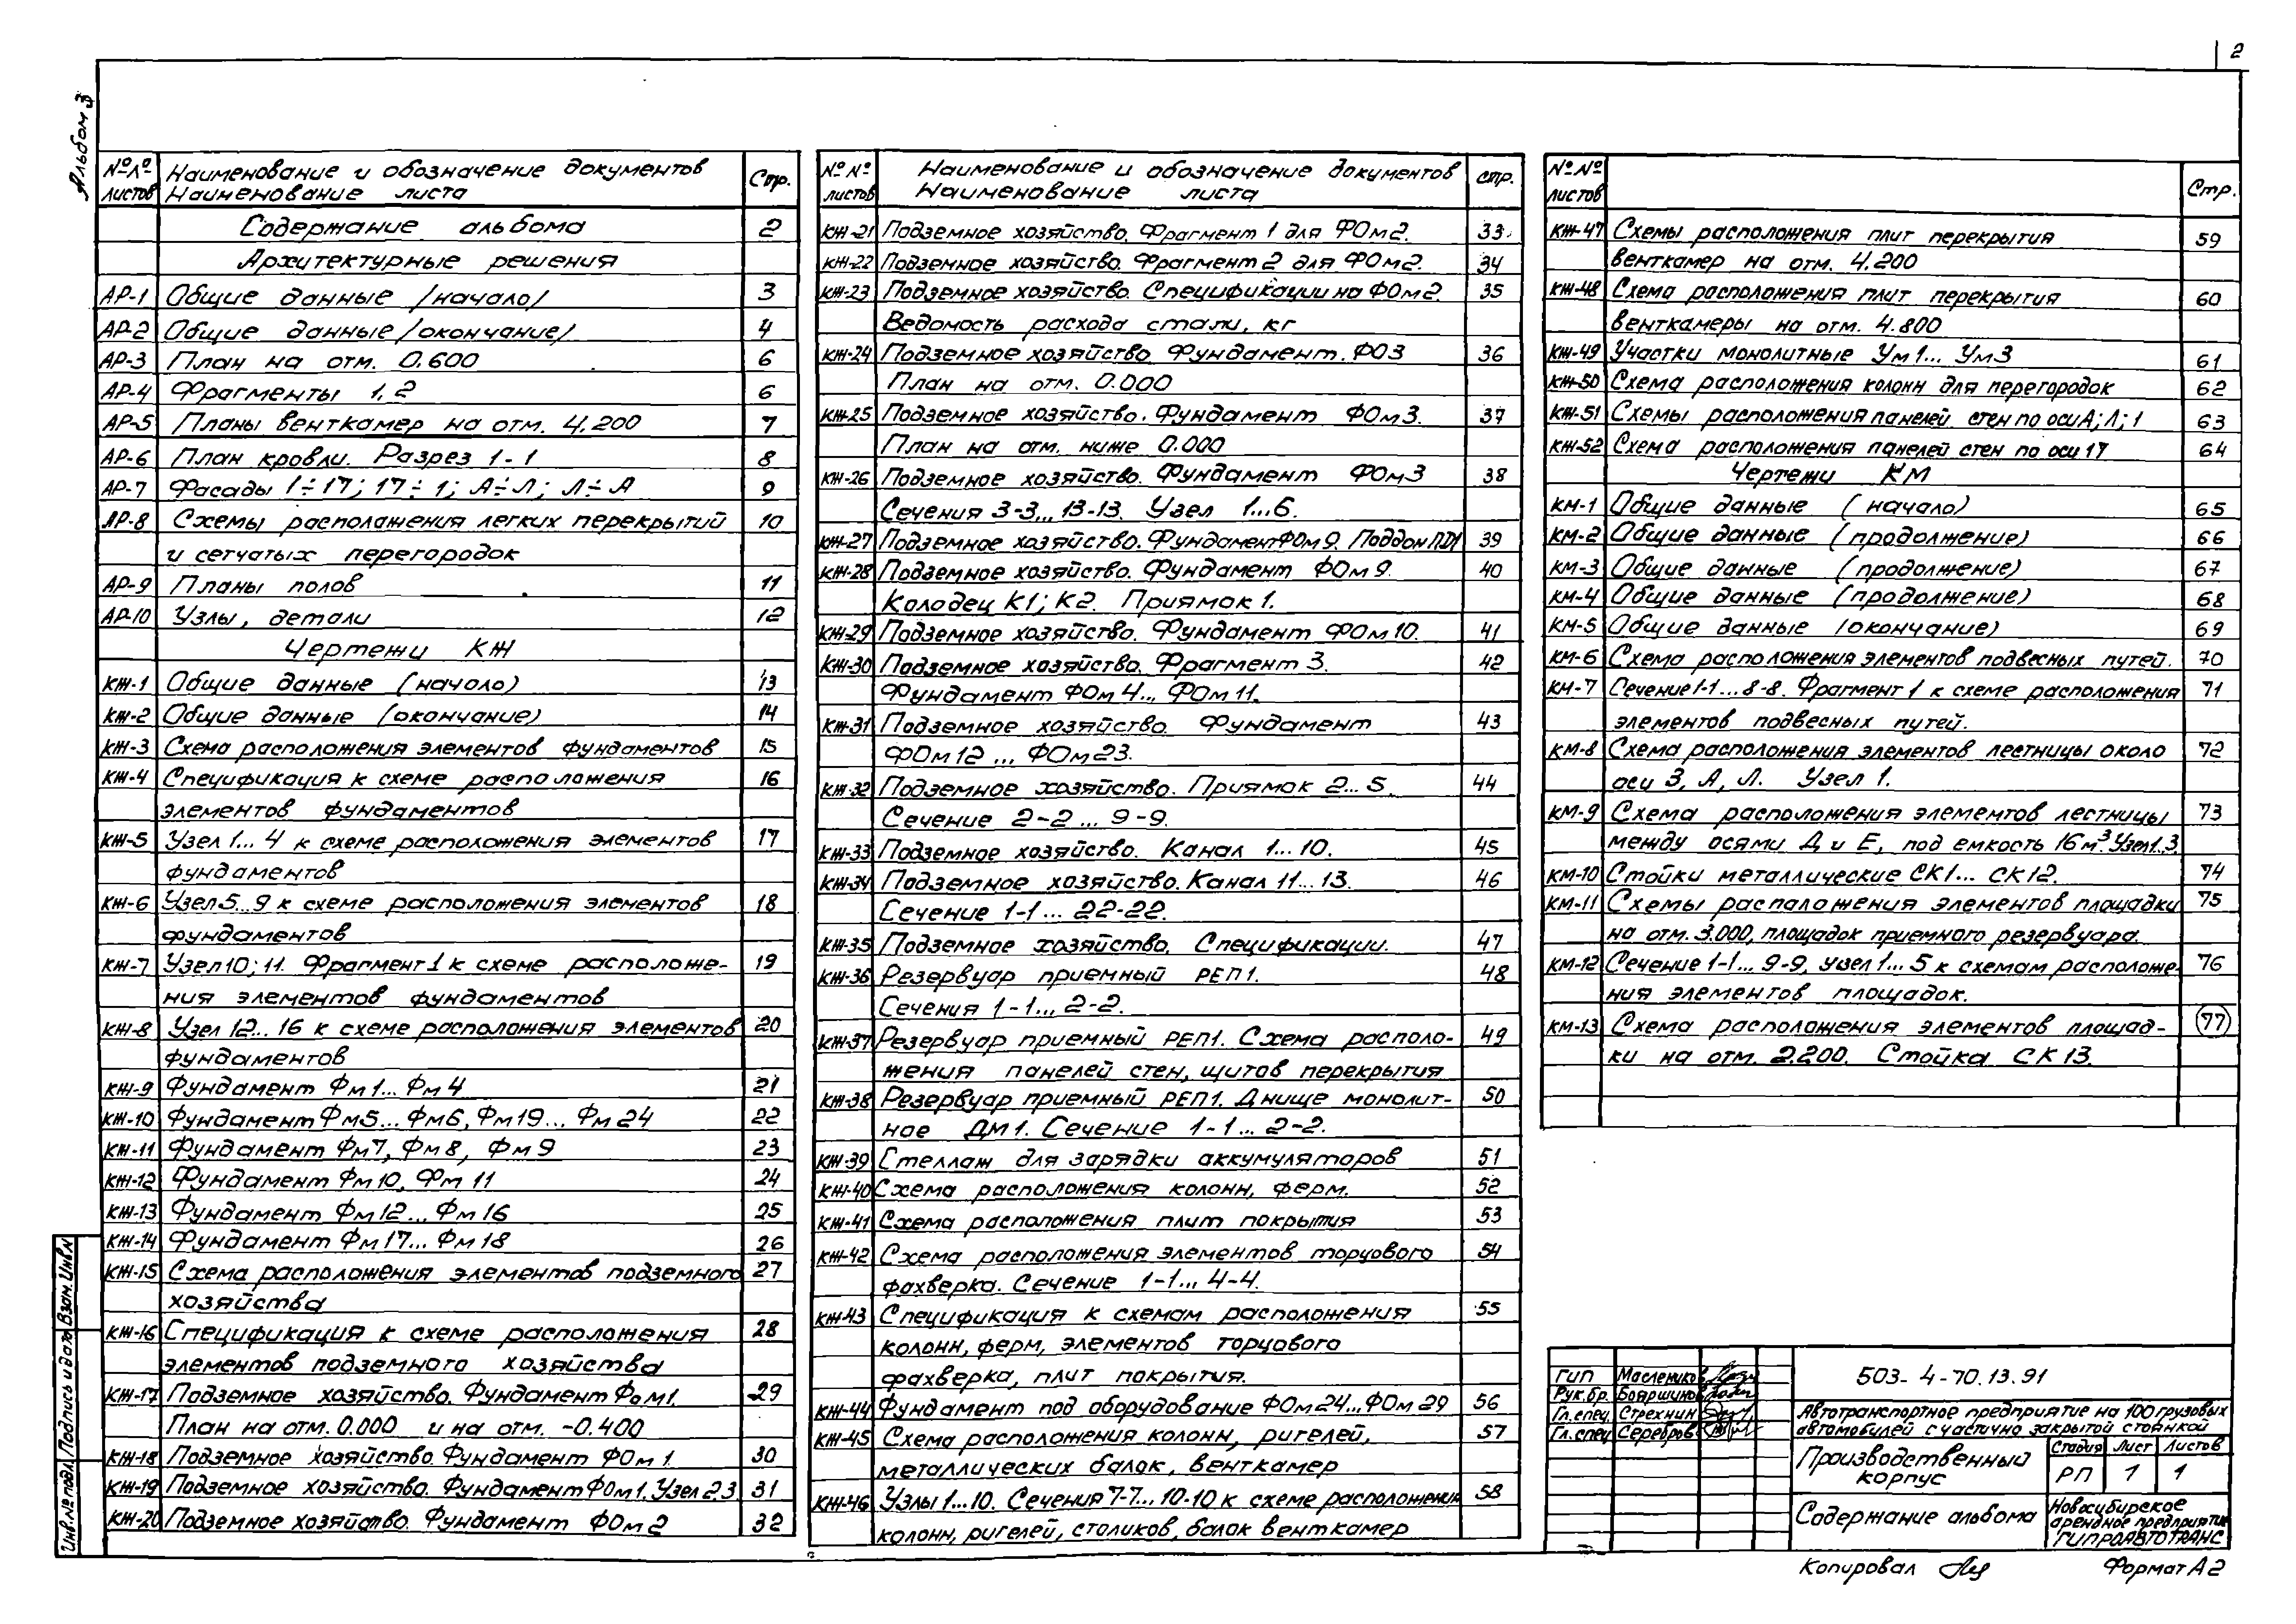 2
Альбом 3
№№ листов Наименование и обозначение документов Наименование листа Стр.
Содержание альбома 2
Архитектурные решения
АР-1 Общие данные /начало/ 3
АР-2 Общие данные /окончание/ 4
АР-3 План на отм. 0.600 6
АР-4 Фрагменты 1, 2 6
АР-5 Планы венткамер на отм. 4.200 7
АР-6 План кровли. Разрез 1-1 8
АР-7 Фасады 1÷17; 17÷1; А÷Л; Л÷А 9
АР-8 Схемы расположения легких перекрытий 10
и сетчатых перегородок
АР-9 Планы полов 11
АР-10 Узлы, детали 12
Чертежи КЖ
КЖ-1 Общие данные (начало) 13
КЖ-2 Общие данные (окончание) 14
КЖ-3 Схема расположения элементов фундаментов 15
КЖ-4 Спецификация к схеме расположения 16
элементов фундаментов
КЖ-5 Узел 1... 4 к схеме расположения элементов 17
фундаментов
КЖ-6 Узел 5...9 к схеме расположения элементов 18
фундаментов
КЖ-7 Узел 10; 11. Фрагмент 1 к схеме расположе- 19
ния элементов фундаментов
КЖ-8 Узел 12... 16 к схеме расположения элементов 20
фундаментов
КЖ-9 Фундамент Фм 1... Фм 4 21
КЖ-10 Фундамент Фм5... Фм6, Фм19... Фм 24 22
КЖ-11 Фундамент Фм7, Фм8, Фм9 23
КЖ-12 Фундамент Фм10, Фм 11 24
КЖ-13 Фундамент Фм12... Фм16 25
КЖ-14 Фундамент Фм17... Фм18 26
КЖ-15 Схема расположения элементов подземного 27
хозяйства
КЖ-16 Спецификация к схеме расположения 28
элементов подземного хозяйства
КЖ-17 Подземное хозяйство. Фундамент Фом1. 29
План на отм. 0.000 и на отм. -0.400
КЖ-18 Подземное хозяйство. Фундамент ФОм 1. 30
КЖ-19 Подземное хозяйство. Фундамент ФОм1. Узел 2,3 31
КЖ-20 Подземное хозяйство. Фундамент ФОм2 32
№№ листов Наименование и обозначение документов Наименование листа стр.
КЖ-21 Подземное хозяйство. Фрагмент 1 для ФОм2. 33
КЖ-22 Подземное хозяйство. Фрагмент 2 для ФОм2. 34
КЖ-23 Подземное хозяйство. Спецификации на ФОм2. 35
Ведомость расхода стали, кг
КЖ-24 Подземное хозяйство. Фундамент. ФО3 36
План на отм. 0.000
КЖ-25 Подземное хозяйство. Фундамент ФОм3. 37
План на отм. ниже 0.000
КЖ-26 Подземное хозяйство. Фундамент ФОм3 38
Сечения 3-3... 13-13. Узел 1...6.
КЖ-27 Подземное хозяйство. Фундамент ФОм9. Поддон ПД1 39
КЖ-28 Подземное хозяйство. Фундамент ФОм9. 40
Колодец К1; К2. Приямок 1.
КЖ-29 Подземное хозяйство. Фундамент ФОм10. 41
КЖ-30 Подземное хозяйство. Фрагмент 3. 42
Фундамент ФОм4... ФОм11.
КЖ-31 Подземное хозяйство. Фундамент 43
ФОм12 ... ФОм23.
КЖ-32 Подземное хозяйство. Приямок 2... 5. 44
Сечение 2-2 ... 9-9.
КЖ-33 Подземное хозяйство. Канал 1... 10. 45
КЖ-34 Подземное хозяйство. Канал 11... 13. 46
Сечение 1-1... 22-22.
КЖ-35 Подземное хозяйство. Спецификации. 47
КЖ-36 Резервуар приемный РЕП1. 48
Сечения 1-1... 2-2.
КЖ-37 Резервуар приемный РЕП1. Схема располо- 49
жения панелей стен, щитов перекрытия
КЖ-38 Резервуар приемный РЕП1. Днище монолит- 50
ное Дм1. Сечение 1-1... 2-2.
КЖ-39 Стеллаж для зарядки аккумуляторов 51
КЖ-40 Схема расположения колонн, ферм. 52
КЖ-41 Схема расположения плит покрытия 53
КЖ-42 Схема расположения элементов торцового 54
фахверка. Сечение 1-1... 4-4.
КЖ-43 Спецификация к схемам расположения 55
колонн, ферм, элементов торцового
фахверка, плит покрытия.
КЖ-44 Фундамент под оборудование ФОм24...ФОм29 56
КЖ-45 Схема расположения колонн, ригелей, 57
металлических балок, венткамер
КЖ-46 Узлы 1...10. Сечения 7-7... 10-10 к схеме расположения 58
колонн, ригелей, столиков, балок венткамер
№№ листов Стр.
КЖ-47 Схемы расположения плит перекрытия 59
венткамер на отм. 4.200
КЖ-48 Схема расположения плит перекрытия 60
венткамеры на отм. 4.800
КЖ-49 Участки монолитные Ум1... Ум3 61
КЖ-50 Схема расположения колонн для перегородок 62
КЖ-51 Схемы расположения панелей стен по оси А; Л; 1 63
КЖ-52 Схема расположения панелей стен по оси 17 64
Чертежи КМ
КМ-1 Общие данные (начало) 65
КМ-2 Общие данные (продолжение) 66
КМ-3 Общие данные (продолжение) 67
КМ-4 Общие данные (продолжение) 68
КМ-5 Общие данные (окончание) 69
КМ-6 Схема расположения элементов подвесных путей. 70
КМ-7 Сечение 1-1... 8-8. Фрагмент 1 к схеме расположения 71
элементов подвесных путей.
КМ-8 Схема расположения элементов лестницы около 72
оси 3, А, Л. Узел 1.
КМ-9 Схема расположения элементов лестницы 73
между осями Д и Е, под емкость 16 м³. Узел 1..3.
КМ-10 Стойки металлические СК1... СК12. 74
КМ-11 Схемы расположения элементов площадки 75
на отм. 3.000, площадок приемного резервуара.
КМ-12 Сечение 1-1... 9-9, узел 1... 5 к схемам расположе- 76
ния элементов площадок.
КМ-13 Схема расположения элементов площад- 77
ки на отм. 2.200. Стойка СК13.
Взам. Инв.N
Подпись и дата
Инв.№ подл.
ГИП Маслеников
Рук.бр. Бояршинов
Гл.спец. Стрехнин
Гл.спец Серебров
503-4-70.13.91
Автотранспортное предприятие на 100 грузовых
автомобилей с частично закрытой стоянкой
Производственный корпус
Стадия Лист Листов
РП 1 1
Содержание альбома
Новосибирское
арендное предприятие
ГИПРОАВТОТРАНС
Копировал Формат А2